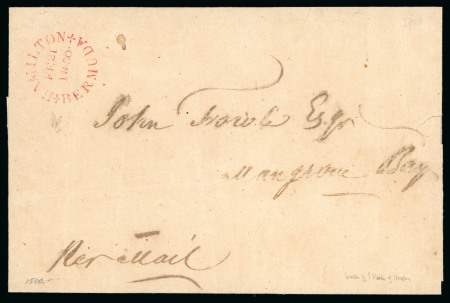 HAMILTON
BERMUDA
FE 21
1850
John Esqr
Mangrove Bay
Per Mail
1500,-